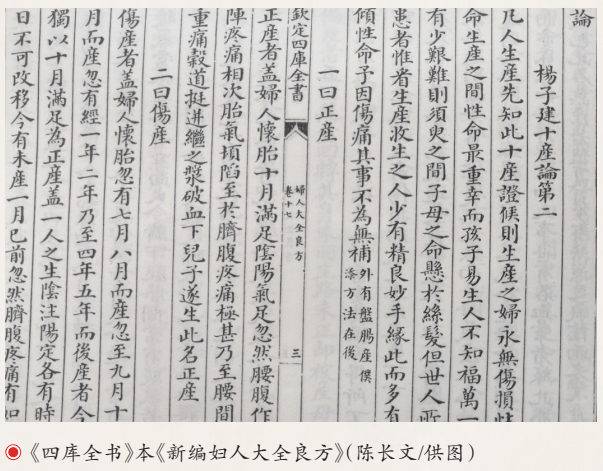 論
楊子建十產論第二
凡人生產先知此十產證候則生產之婦永無傷損性
命生產之間性命最重幸而孩子易生人不知福萬一
有少艱難則須臾之間子母之命懸於絲髮但世人所
患者惟看生產收生之人少有精良妙手緣此而多有
傾性命予因傷痛其事不為無補外有盤腸產僕
添方法在後
一曰正產
欽定四庫全書
婦人大全良方
卷十七
三
正產者蓋婦人懷胎十月滿足陰陽氣足忽然腰腹作
陣疼痛相次胎氣頓陷至於臍腹疼痛極甚乃至腰間
重痛穀道挺迸繼之漿破血下兒子遂生此名正產
二曰傷產
傷產者蓋婦人懷胎忽有七月八月而產忽至九月十
月而產忽有經一年二年乃至四年五年而後產者今
獨以十月滿足為正產蓋一人之生陰注陽定各有時
日不可改移今有未產一月已前忽然臍腹疼痛有如
《四库全书》本《新编妇人大全良方》（陈长文/供图）